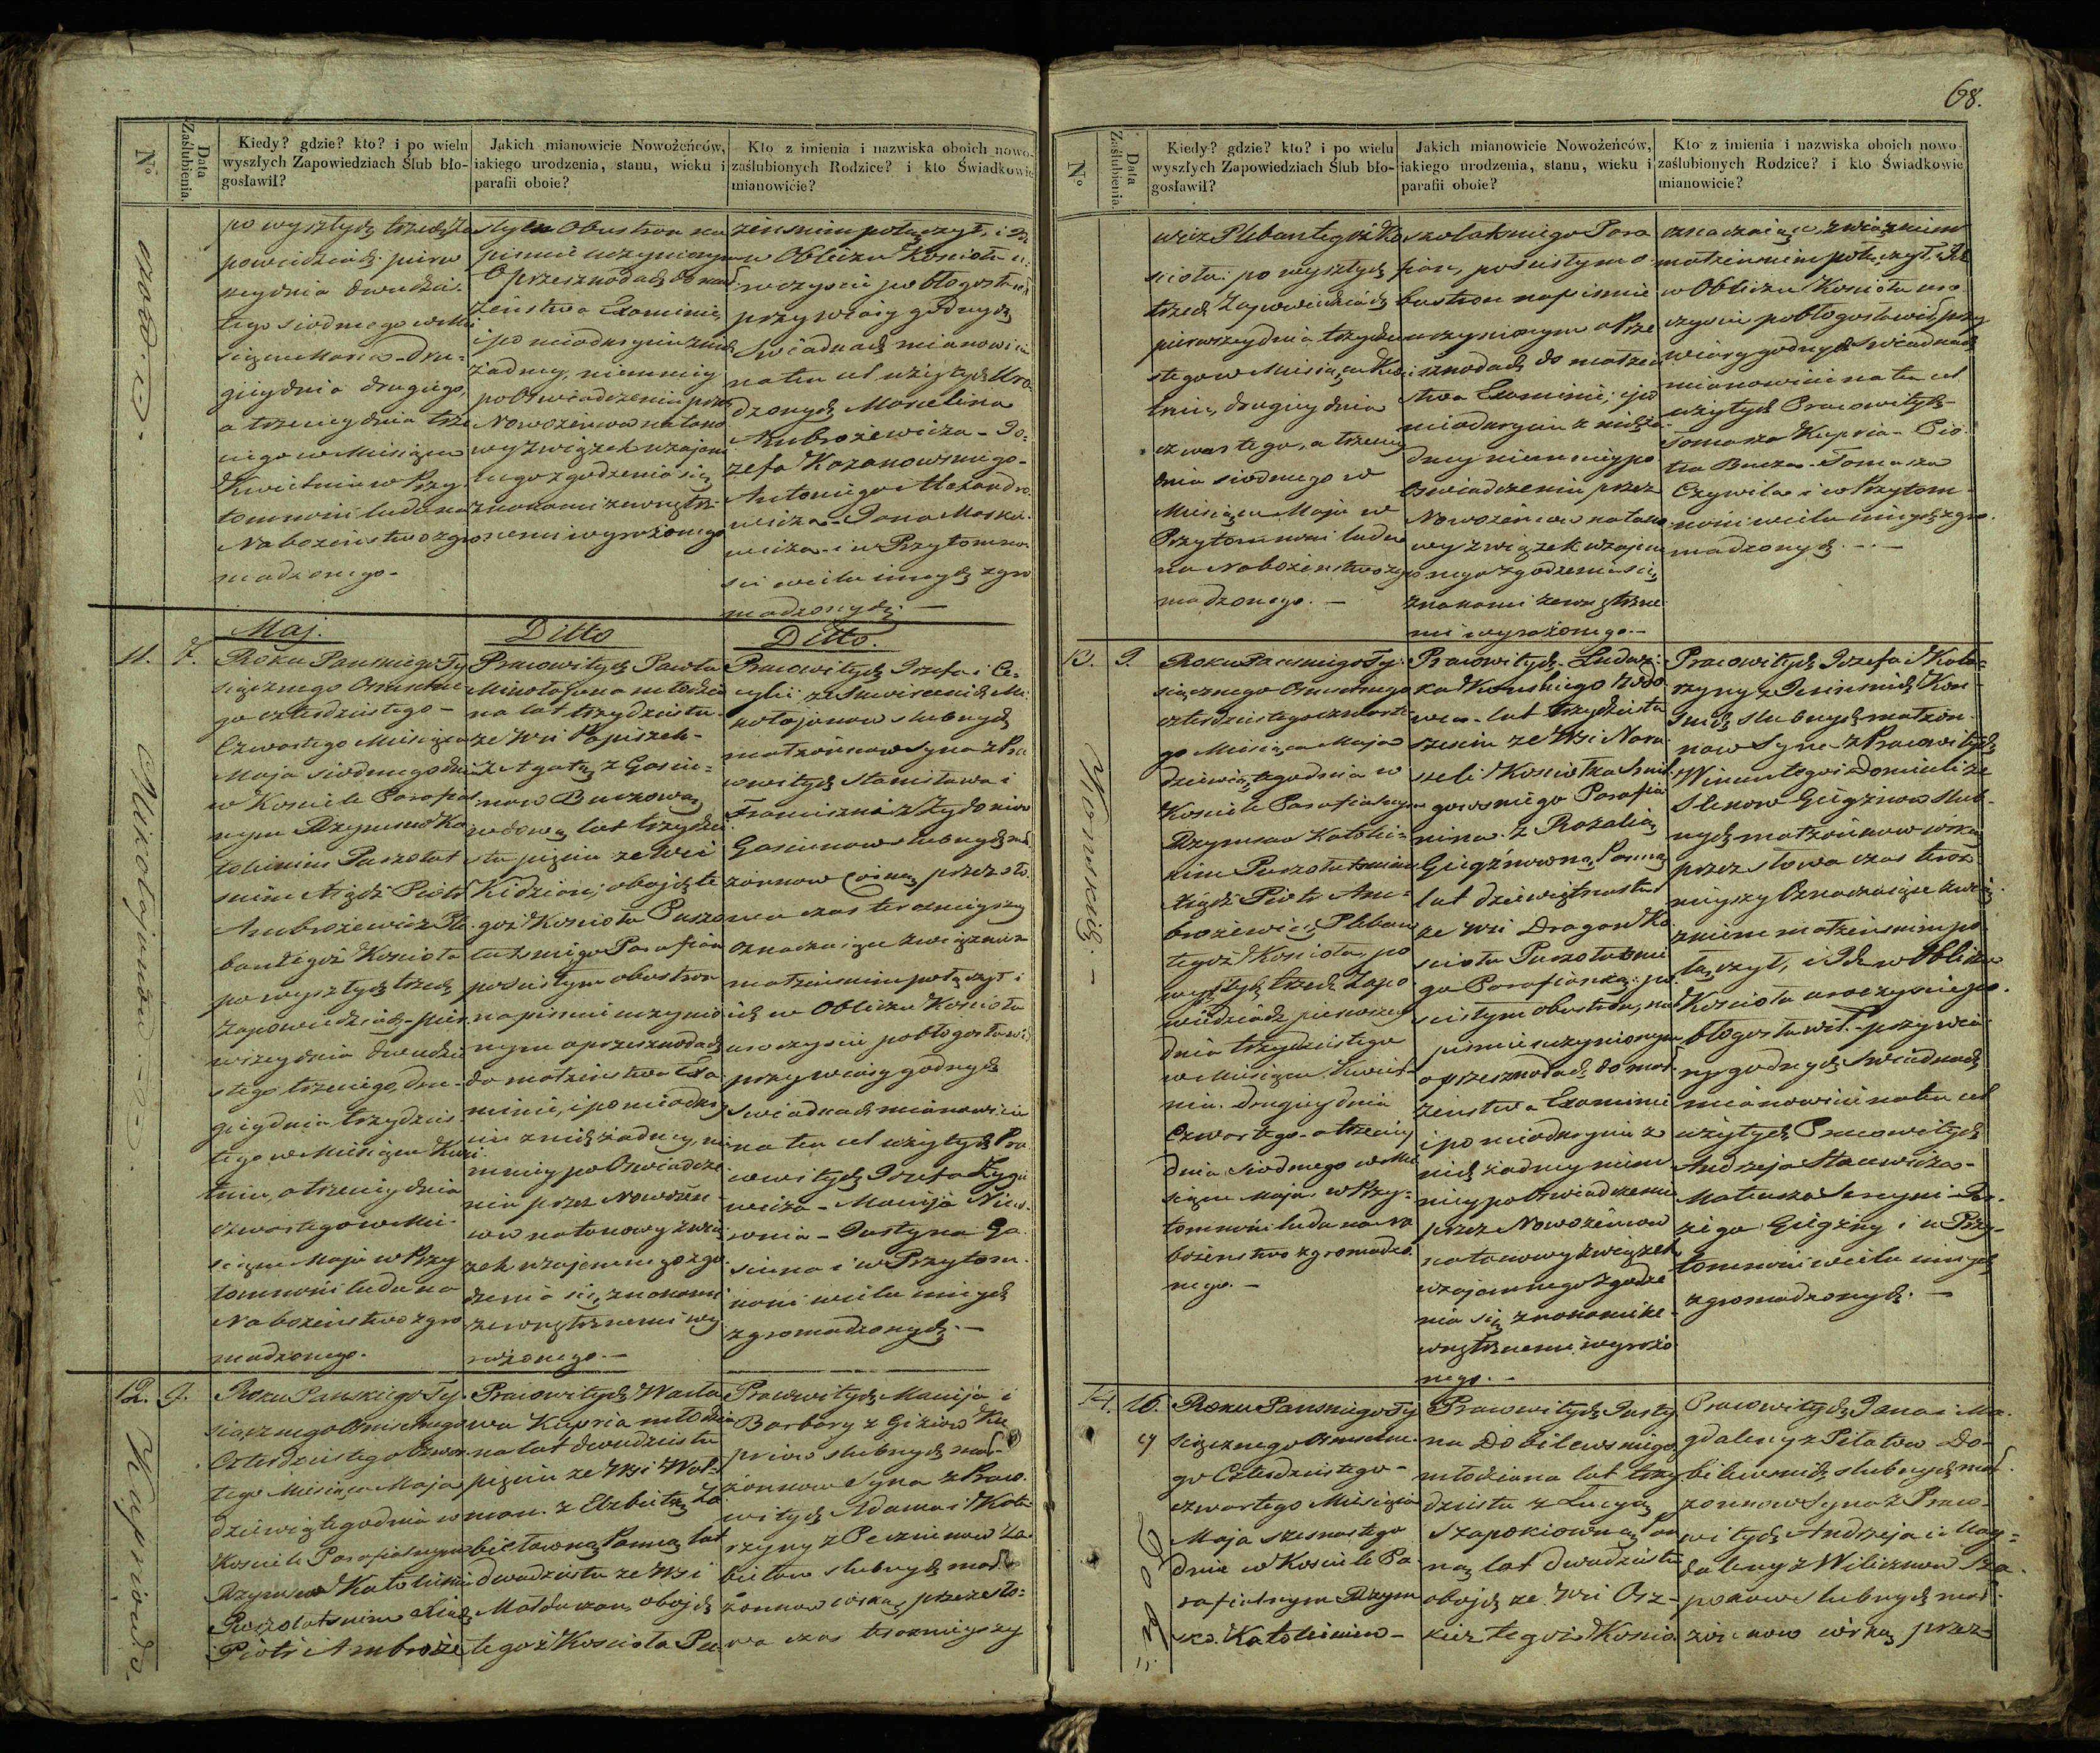 68.
N°
Data Zaślubienia.
Kiedy? gdzie? kto? i po wielu
wyszłych Zapowiedziach Ślub bło-
gosławił?
Jakich mianowicie Nowożeńców,
iakiego urodzenia, stanu, wieku i
parafii oboie?
Kto z imienia i nazwiska oboich nowo-
zaślubionych Rodzice? i kto Świadkowie
mianowicie?
po wyszłych trzech Za
powiedziach pierw
szey dnia dwudzies
tego siodmego w Mie
siącu Marcu - dru-
giey dnia drugiego,
a trzeciey dnia trze
ciego w Miesiącu
Kwietniu w Przy
tomności ludu na
Nabożeństwo zgro
madzonego.
obustron na
piśmie uczynionym
O przeszkodach do mał
żeństwa Examinie,
i po nieodkryciu z nich
żadney, niemniey
po Oświadczeniu przez
Nowożeńców na tako
wy związek wzajem
nego zgodzenia się
znakami zewnętrz-
nemi wyrażonego
żeńskim połączył, i
w Obliczu Kościoła u-
roczyście pobłogosławił
przy wiary godnych
Świadkach mianowicie
na ten cel użytych Uro
dzonych Marcelina
Ambrożewicza - Jo-
zefa Kazanowskiego -
Antoniego Alexandro
wicza - Jana Maska
wicza - i w Przytomno
ści wielu innych zgro
madzonych. -
Maj.
Ditto
Ditto.
11.
7.
Mikołajunow.
Roku Pańskiego Ty
siącznego Osmsetne
go czterdziestego -
Czwartego Miesiąca
Maja siodmego dnia
w Kościele Parafial
nym Rzymsko Ka
tolickim Puszołat
skim Xiądz Piotr
Ambrożewicz Ple
ban tegoż Kościoła
po wyszłych trzech
Zapowiedziach - pier
wszey dnia dwudzie
stego trzeciego, dru-
giey dnia trzydzies
tego w Miesiącu Kwie
tniu, a trzeciey dnia
czwartego w Mie-
siącu Maju w Przy
tomności ludu na
Nabożeństwo zgro
madzonego.
Pracowitych Pawła
Mikołajuna młodzia
na lat trzydziestu
ze Wsi Papiszek -
z Agatą z Gasiu-
now Buczową
wdową lat trzydzie
stu pięciu ze Wsi
Kidzion; obojdę te
goż Kościoła Puszo
łatskiego Parafian
po ścisłym obustron
na piśmie uczynio
nym o przeszkodach
do małżeństwa Exa
minie, i po nieodkry
ciu z nich żadney, nie
mniey po Oświadcze
niu przez Nowożeń
ców na takowy zwią
zek wzajemnego zgo
dzenia się znakami
zewnętrznemi wy
rażonego. -
Pracowitych Jozefa i Ce-
cylii ze Skwirenich Mi
kołajunow ślubnych
małżonkow Syna z Pra
cowitych Stanisława i
Franciszki z Zydoniow
Gasiunow ślubnych mał
żonkow Corką przez sło
wa czas teraznieyszy
oznaczaiące związkiem
małżeńskim połączył i
ich w Obliczu Kościoła
uroczyście pobłogosławił
przy wiary godnych
Świadkach mianowicie
na ten cel użytych Pra
cowitych Jozefa Zygu
wicza - Macieja Niew-
ronia - Justyna Ga
siuna i w Przytom-
ności wielu innych
zgromadzonych. -
12.
9.
Kupriow.
Roku Pańskiego Ty
siącznego Osmsetnego
Czterdziestego Czwar
tego Miesiąca Maja
dziewiątego dnia w
Kościele Parafialnym
Rzymsko Katolickim
Puszołatskim Xiądz
Piotr Ambroże
Pracowitych Wacła
wa Kupria młodzia
na lat dwudziestu
pięciu ze Wsi Woł-
man. z Elzbietą Ła
bietowną Panną lat
dwadziestu ze Wsi
Małdaczan, obojdę
tegoż Kościoła Pu
Pracowitych Macieja i
Barbary z Giziow Ku
priow ślubnych mał-
żonkow Syna z Praco
witych Adama i Kata
rzyny z Pecziunow Ła
bietow ślubnych mał
żonkow corką, przez sło-
wa czas teraznieyszy
wicz Pleban tegoż Ko
ścioła: po wyszłych
trzech Zapowiedziach
pierwszey dnia trzydzie
stego w Miesiącu Kwie
tniu, drugiey dnia
czwartego, a trzeciey
dnia siodmego w
Miesiącu Maju w
Przytomności ludu
na Nabożeństwo zgro
madzonego. -
szołatskiego Para
fian, po ścisłym o
bustron na piśmie
uczynionym o Prze
szkodach do małżeń
stwa Examinie; i po
nieodkryciu z nich ża
dney niemniey po
Oświadczeniu przez
Nowożeńców na tako
wy związek wzajem
nego zgodzenia się
znakami zewnętrzne
mi wyrażonego. -
oznaczaiące, związkiem
małżeńskim połączył, i Ich
w Obliczu Kościoła uro
czyście pobłogosławił przy
wiary godnych Świadkach
mianowicie na ten cel
użytych Pracowitych -
Tomasza Kupria - Pio
tra Bucza - Tomasza
Czywila i w Przytom
ności wielu innych zgro
madzonych. -
13.
9.
Roku Pańskiego Ty-
siącznego Osmsetnego
czterdziestego czwarte
go Miesiąca Maja
dziewiątego dnia w
Kościele Parafialnym
Rzymsko Katolic-
kim Puszołatskim
Xiądz Piotr Am-
brożewicz Pleban
tegoż Kościoła, po
wyszłych trzech Zapo
wiedziach pierwszey
dnia trzydziestego
w Miesiącu Kwiet-
niu. drugiey dnia
Czwartego - a trzeciey
dnia siodmego w Mie
siącu Maju w Przy-
tomności ludu na Na
bożeństwo zgromadzo
nego. -
Pracowitych - Ludwi-
ka Konskiego Wdo
wca - lat trzydziestu
sześciu ze Wsi Nara
szeli Kościoła Smil
gowskiego Parafia
nina. z Rozalią
Giegżnowną Panną
lat dziewiętnastu
ze Wsi Dragan Ko
ścioła Puszołatskie
go Parafianką: po
ścisłym obustron, na
piśmie uczynionym
o przeszkodach do mał
żeństwa Examinie
i po nieodkryciu z
nich żadney niem
niey po Oświadczeniu
przez Nowożeńców
na takowy związek
wzajemnego zgodze
nia się znakami ze-
wnętrznemi wyrażo
nego. -
Pracowitych Jozefa i Kata-
rzyny z Jesinskich Kon-
skich ślubnych małżon-
kow Syna z Pracowitych
Wincentego i Dominiki ze
Slenow Giegżnow ślub-
nych małżonkow corką
przez słowa czas teraz
nieyszy Oznaczaiące zwią
zkiem małżeńskim po-
łączył, i Ich w Obliczu
Kościoła uroczyście po-
błogosławił - przy wia-
ry godnych Świadkach
mianowicie na ten cel
użytych Pracowitych
Andrzeja Stacewicza -
Mateusza
Giegżny i w Przy-
tomności wielu innych
zgromadzonych. -
14.
16.
Roku Pańskiego Ty
siącznego Osmsetne-
go Czterdziestego -
czwartego Miesiąca
Maja szesnastego
dnia w Kościele Pa-
rafialnym Rzym
sko Katolickim -
Pracowitych Justy
na Dobilewskiego
młodziana lat trzy
dziestu z Łucyą
Szapokiowną Pan
ną lat dwadziestu
obojdę ze Wsi Osz-
kież tegoż Kościo
Pracowitych Jana i Ma-
gdaleny z Piłatow Do-
bilewskich ślubnych mał
żonkow Syna z Praco-
witych Andrzeja i Mag-
daleny z Wiliczkow Sza-
pokow ślubnych mał-
żonkow corką przez